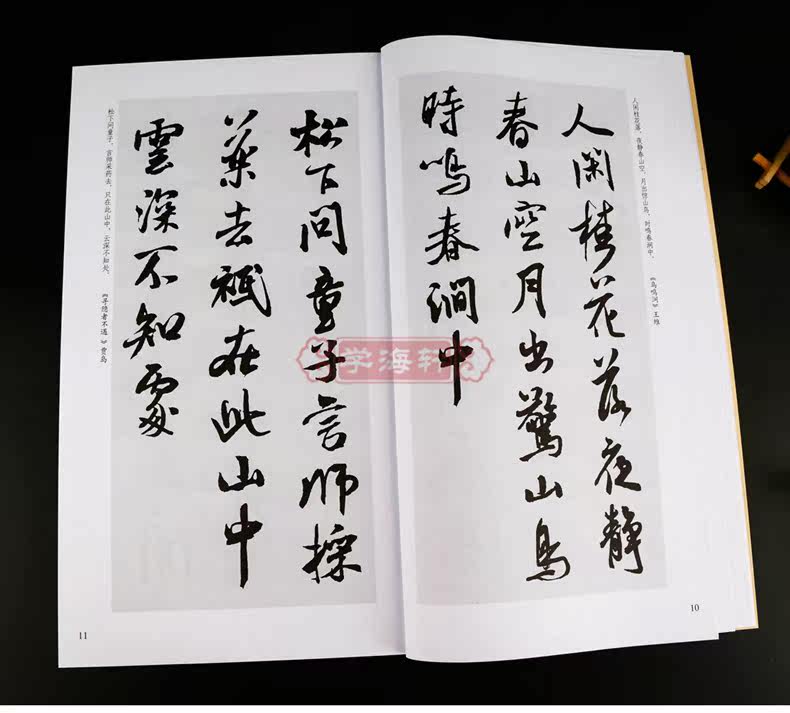 人闲桂花落，夜静春山空。月出惊山鸟，时鸣春涧中。
《鸟鸣涧》王维
人闲桂花落夜静
春山空月出驚山鳥
時鳴春澗中
10
松下问童子，言师采药去。只在此山中，云深不知处。
《寻隐者不遇》贾岛
松下问童子言师採
药去祇在此山中
雲深不知處
11
学海轩